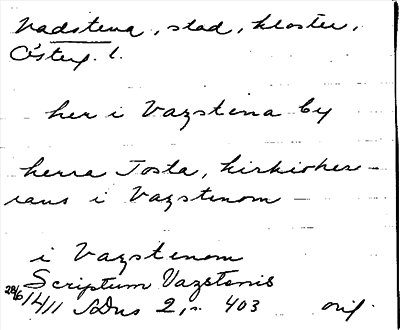 Vadstena, stad, kloster,
Österg. l.
her i Vazstena by
herra Josta, kirkioher-
rans i Vazstenom -
i Vazstenom
Scriptum Vazstenis
28/6 1411 SDns 2, 403 orig.